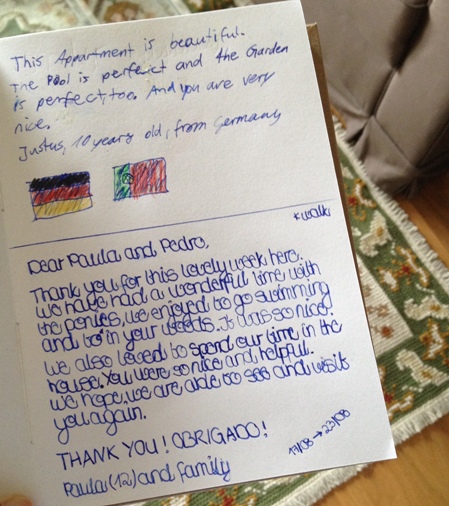 This Appartment is beautiful.
The Pool is perfect and the Garden
is perfect, too. And you are very
nice.
Justus, 10 years old, from Germany
*walk
Dear Paula and Pedro,
Thank you for this lovely week here.
We have had a wonderful time with
the ponies, we enjoyed to go swimming
and to * in your woods. It was so nice!
We also loved to spend our time in the
house. You were so nice and helpful.
We hope, we are able to see and visit
you again.
THANK YOU! OBRIGADO!
17/08 → 23/08
Paula (12) and family